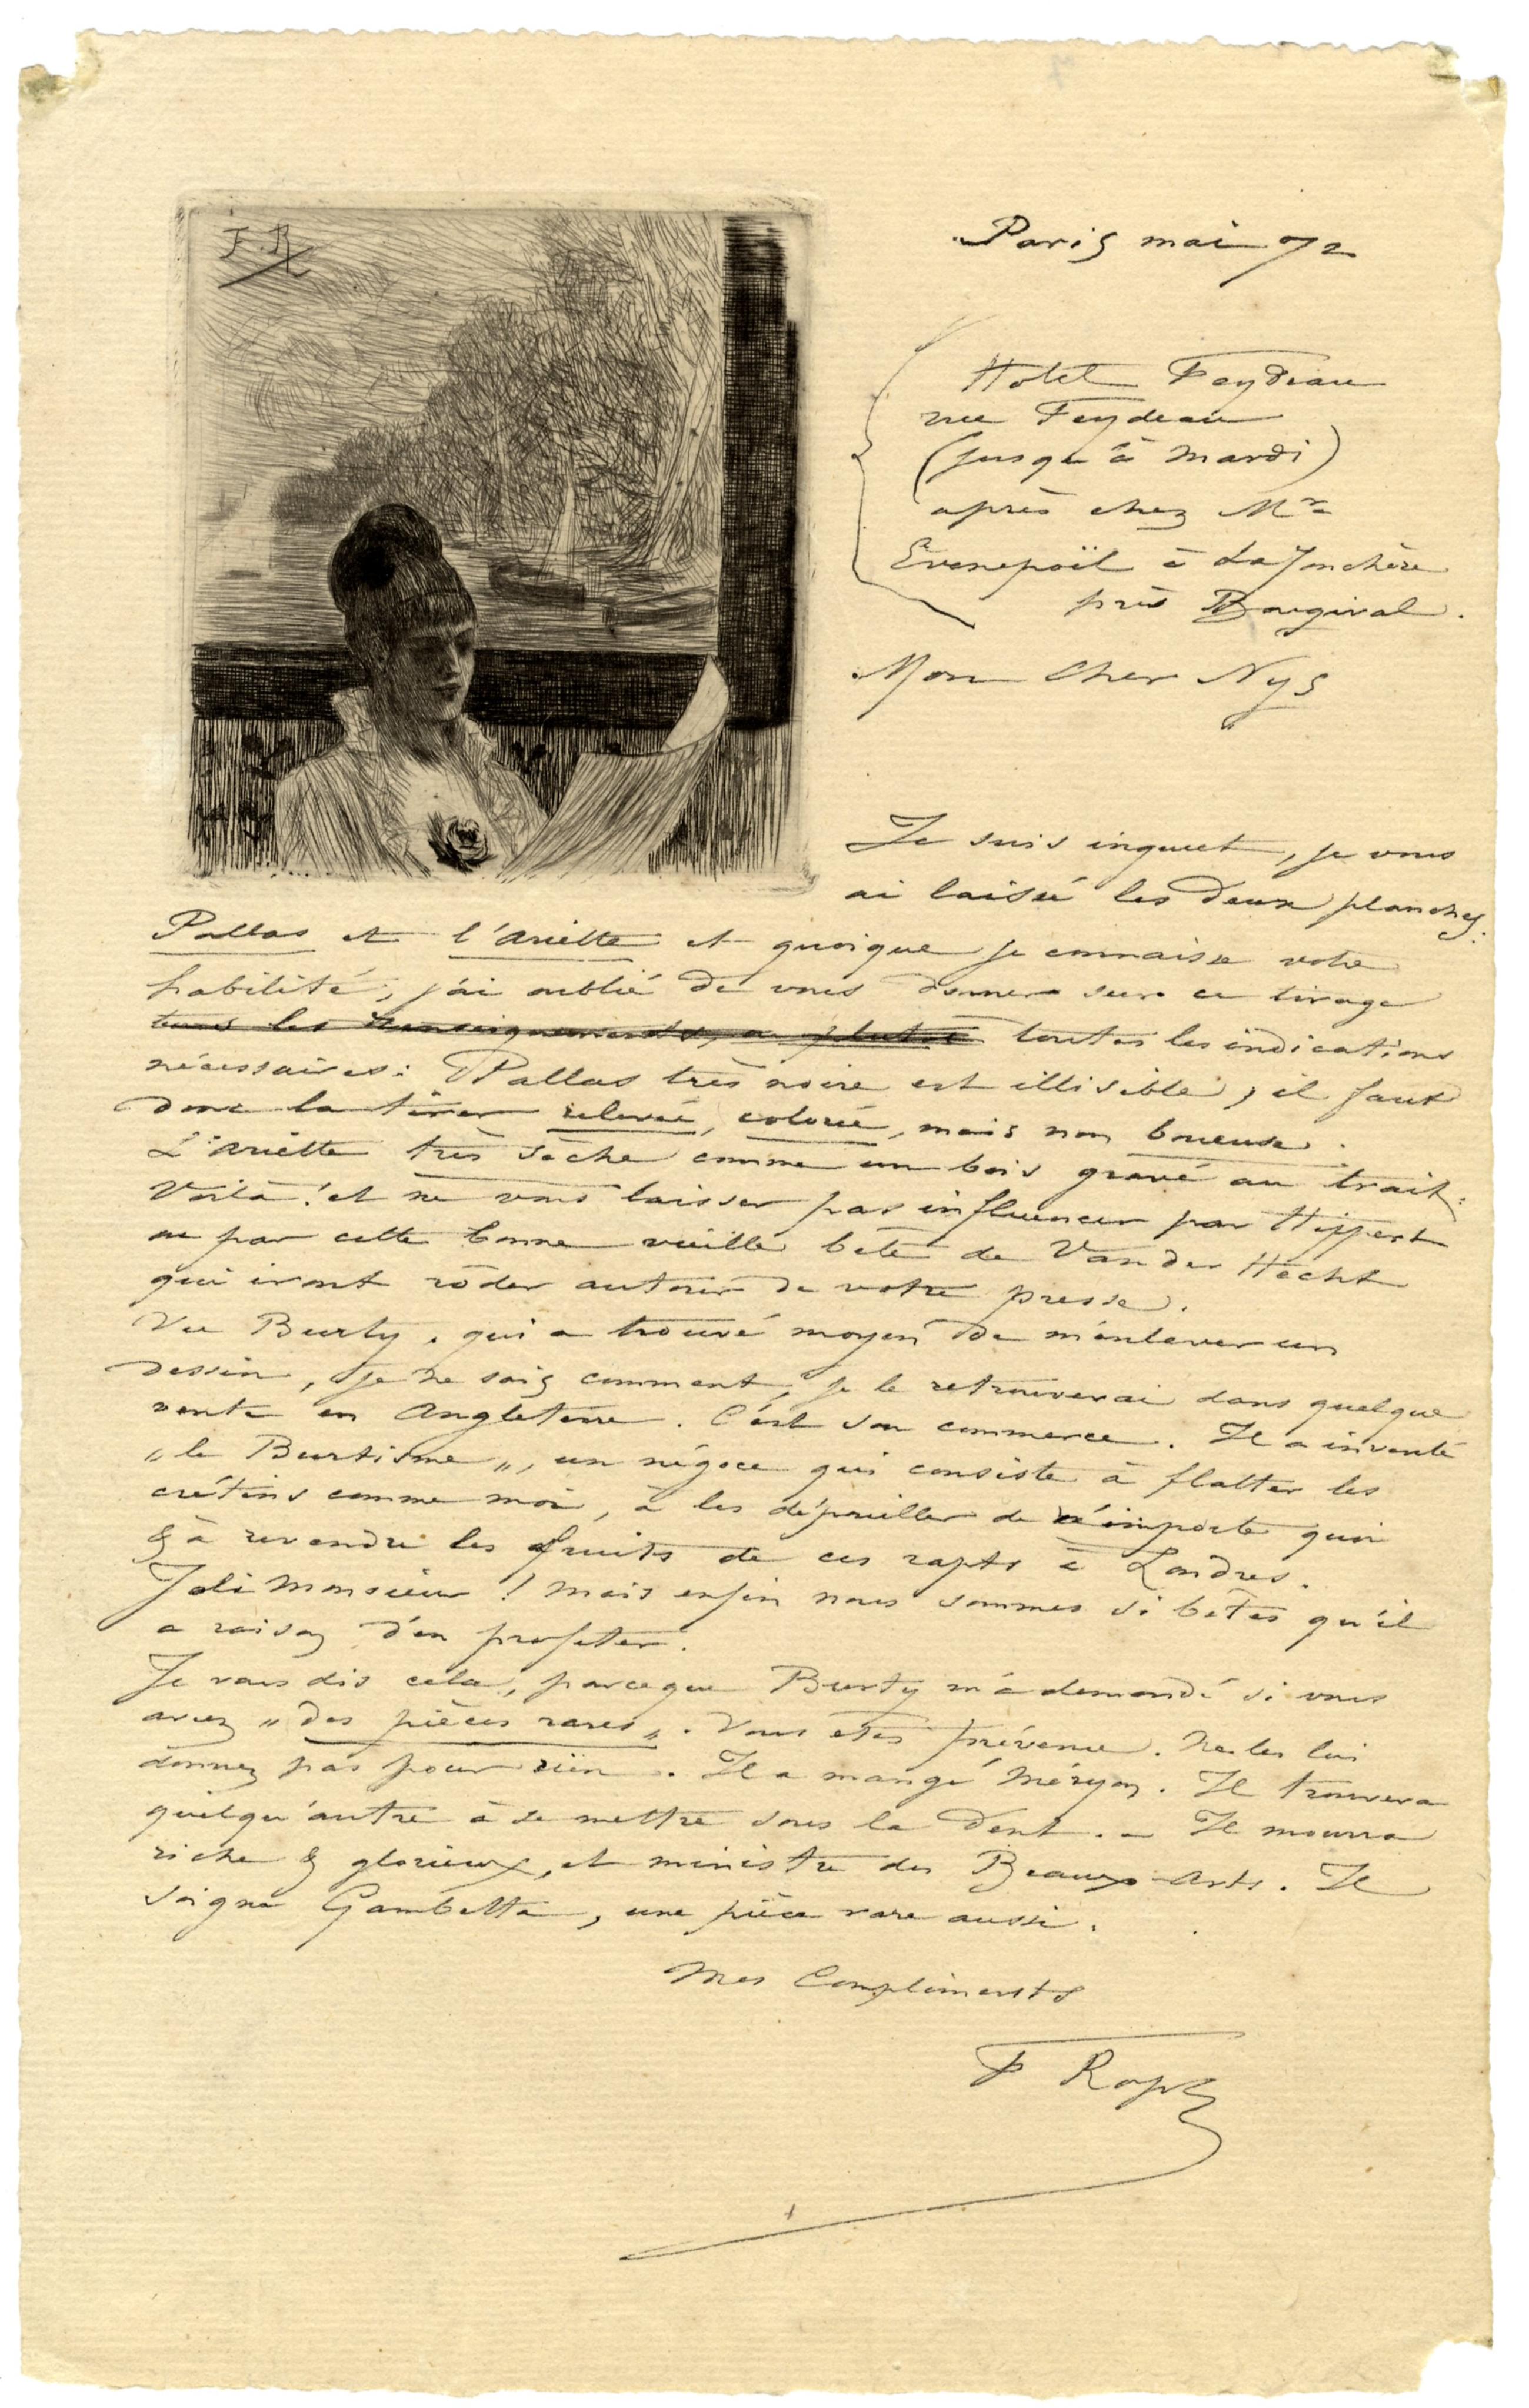 F.R
Paris mai 72
Hotel Feydeau
rue Feydeau
(jusqu'à mardi)
après chez Mr
Evenepoël à La Jonchère
près Bougival.
Mon Cher Nys
Je suis inquiet, je vous
ai laissé les deux planches:
Pallas et l'Ariette et quoique je connaisse votre
habilité, j'ai oublié de vous donner sur ce tirage
tous les renseignements, ou plutot toutes les indications
nécessaires: Pallas très noire est illisible, il faut
donc la tirer relevée, colorée, mais non boueuse.
L'Ariette très sèche comme un bois gravé au trait.
Voilà! et ne vous laisser pas influencer par Hippert
ou par cette bonne vieille bête de Van der Hecht
qui iront rôder autour de votre presse.
Vu Burty. qui a trouvé moyen de m'enlever un
dessin, je ne sais comment, je le retrouverai dans quelque
vente en Angleterre. C'est son commerce. Il a inventé
„le Burtisme„, un négoce qui consiste à flatter les
crétins comme moi, à les dépouiller de n'importe quoi
& à revendre les fruits de ces rapts à Londres.
Joli Monsieur! mais enfin nous sommes si bêtes qu'il
a raison d'en profiter.
Je vous dis cela, parceque Burty m'a demandé si vous
aviez „des pièces rares„. Vous etes prévenu. Ne les lui
donnez pas pour rien. Il a mangé Méryon. Il trouvera
quelqu'autre à se mettre sous la dent. – Il mourra
riche & glorieux, et ministre des Beaux-Arts. Il
soigne Gambetta, une pièce rare aussi.
Mes Compliments
F Rops